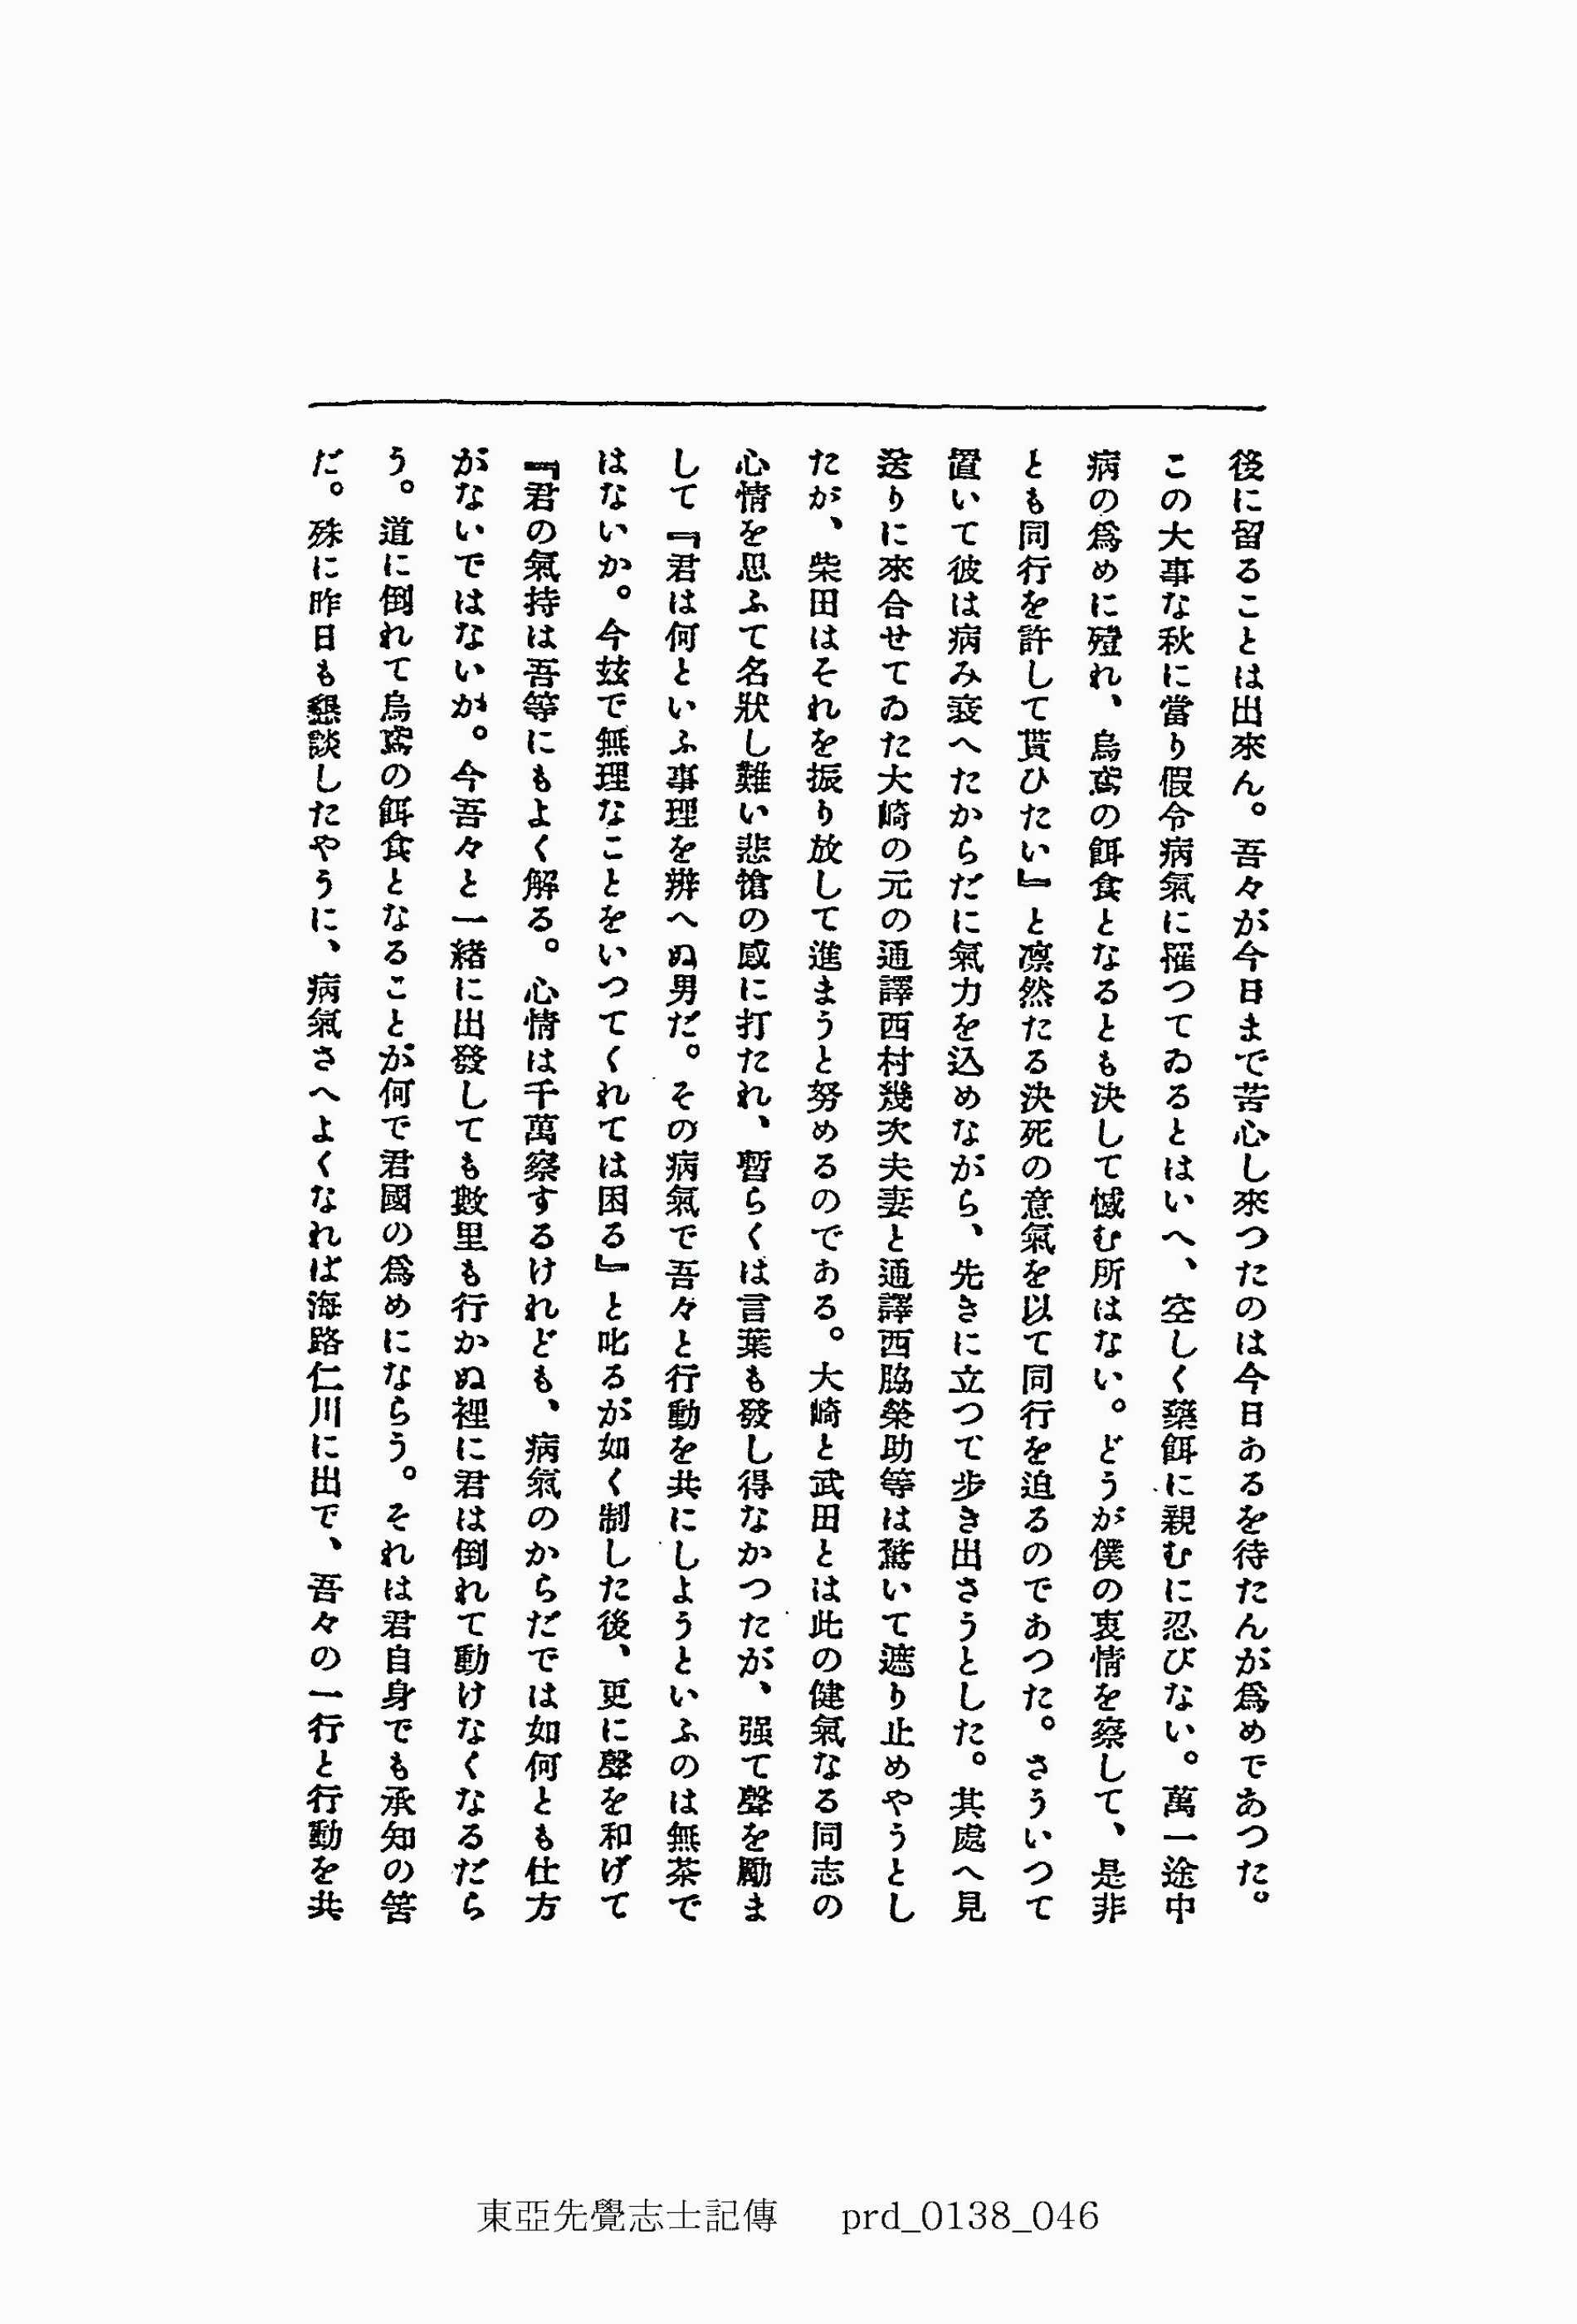 後に留ることは出來ん。吾々が今日まで苦心し來つたのは今日あるを待たんが爲めであつた。
この大事な秋に當り假令病氣に罹つてゐるとはいへ、空しく藥餌に親むに忍びない。萬一途中
病の爲めに殪れ、烏鳶の餌食となるとも決して憾む所はない。どうが僕の衷情を察して、是非
とも同行を許して貰ひたい』と凛然たる決死の意氣を以て同行を迫るのであつた。さういつて
置いて彼は病み衰へたからだに氣力を込めながら、先きに立つて步き出さうとした。其處へ見
送りに來合せてゐた大崎の元の通譯西村幾次夫妻と通譯西脇榮助等は驚いて遮り止めやうとし
たが、柴田はそれを振り放して進まうと努めるのである。大崎と武田とは此の健氣なる同志の
心情を思ふて名狀し難い悲愴の感に打たれ、暫らくは言葉も發し得なかつたが、强て聲を勵ま
して『君は何といふ事理を辨へぬ男だ。その病氣で吾々と行動を共にしようといふのは無茶で
はないか。今玆で無理なことをいつてくれては困る』と叱るが如く制した後、更に聲を和げて
『君の氣持は吾等にもよく解る。心情は千萬察するけれども、病氣のからだでは如何とも仕方
がないではないか。今吾々と一緖に出發しても數里も行かぬ裡に君は倒れて動けなくなるだら
う。道に倒れて烏鳶の餌食となることが何で君國の爲めにならう。それは君自身でも承知の筈
だ。殊に昨日も懇談したやうに、病氣さへよくなれば海路仁川に出で、吾々の一行と行動を共
東亞先覺志士記傳 prd_0138_046